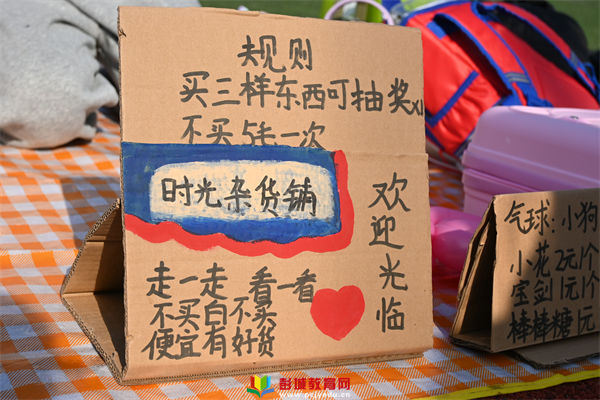 规则
买三样东西可抽奖x1
不买5张一次
时光杂货铺
欢迎光临
走一走 看一看
不买白不买
便宜有好货
气球:小狗
小花2元1个
宝剑1元1个
棒棒糖1元
彭城教育网
www.pcjyedu.cn